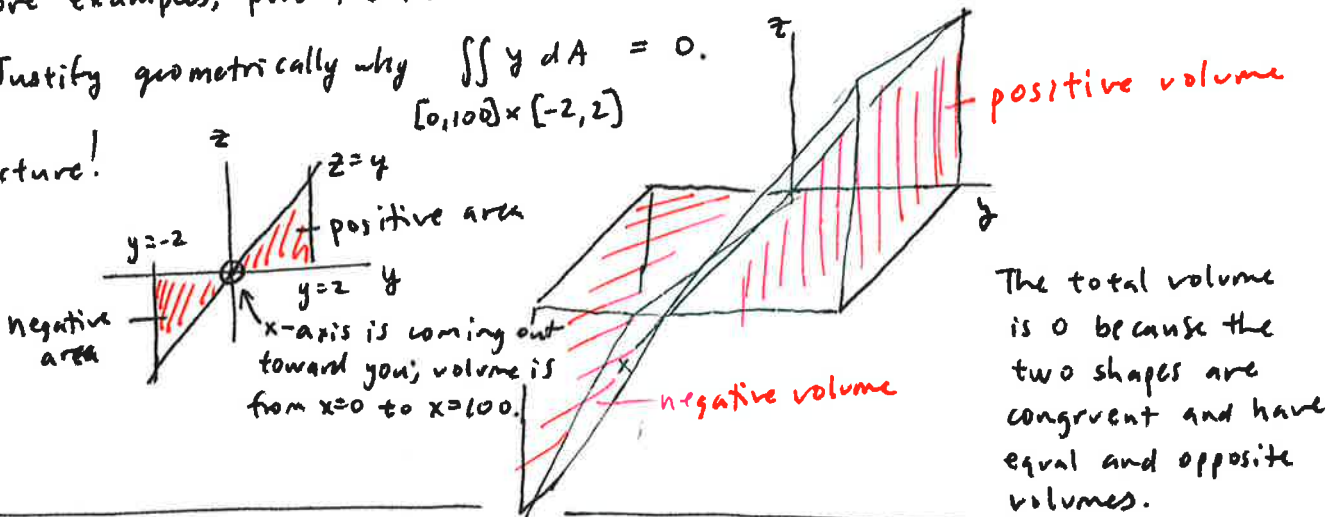 ore examples,
Justify geometrically why ∬ y dA = 0.
[0,100]×[-2,2]
cture!
z
z=y
positive area
y=-2
y=2
y
negative
area
x-axis is coming out
toward you; volume is
from x=0 to x=100.
z
positive volume
y
x
negative volume
The total volume
is 0 because the
two shapes are
congruent and have
equal and opposite
volumes.